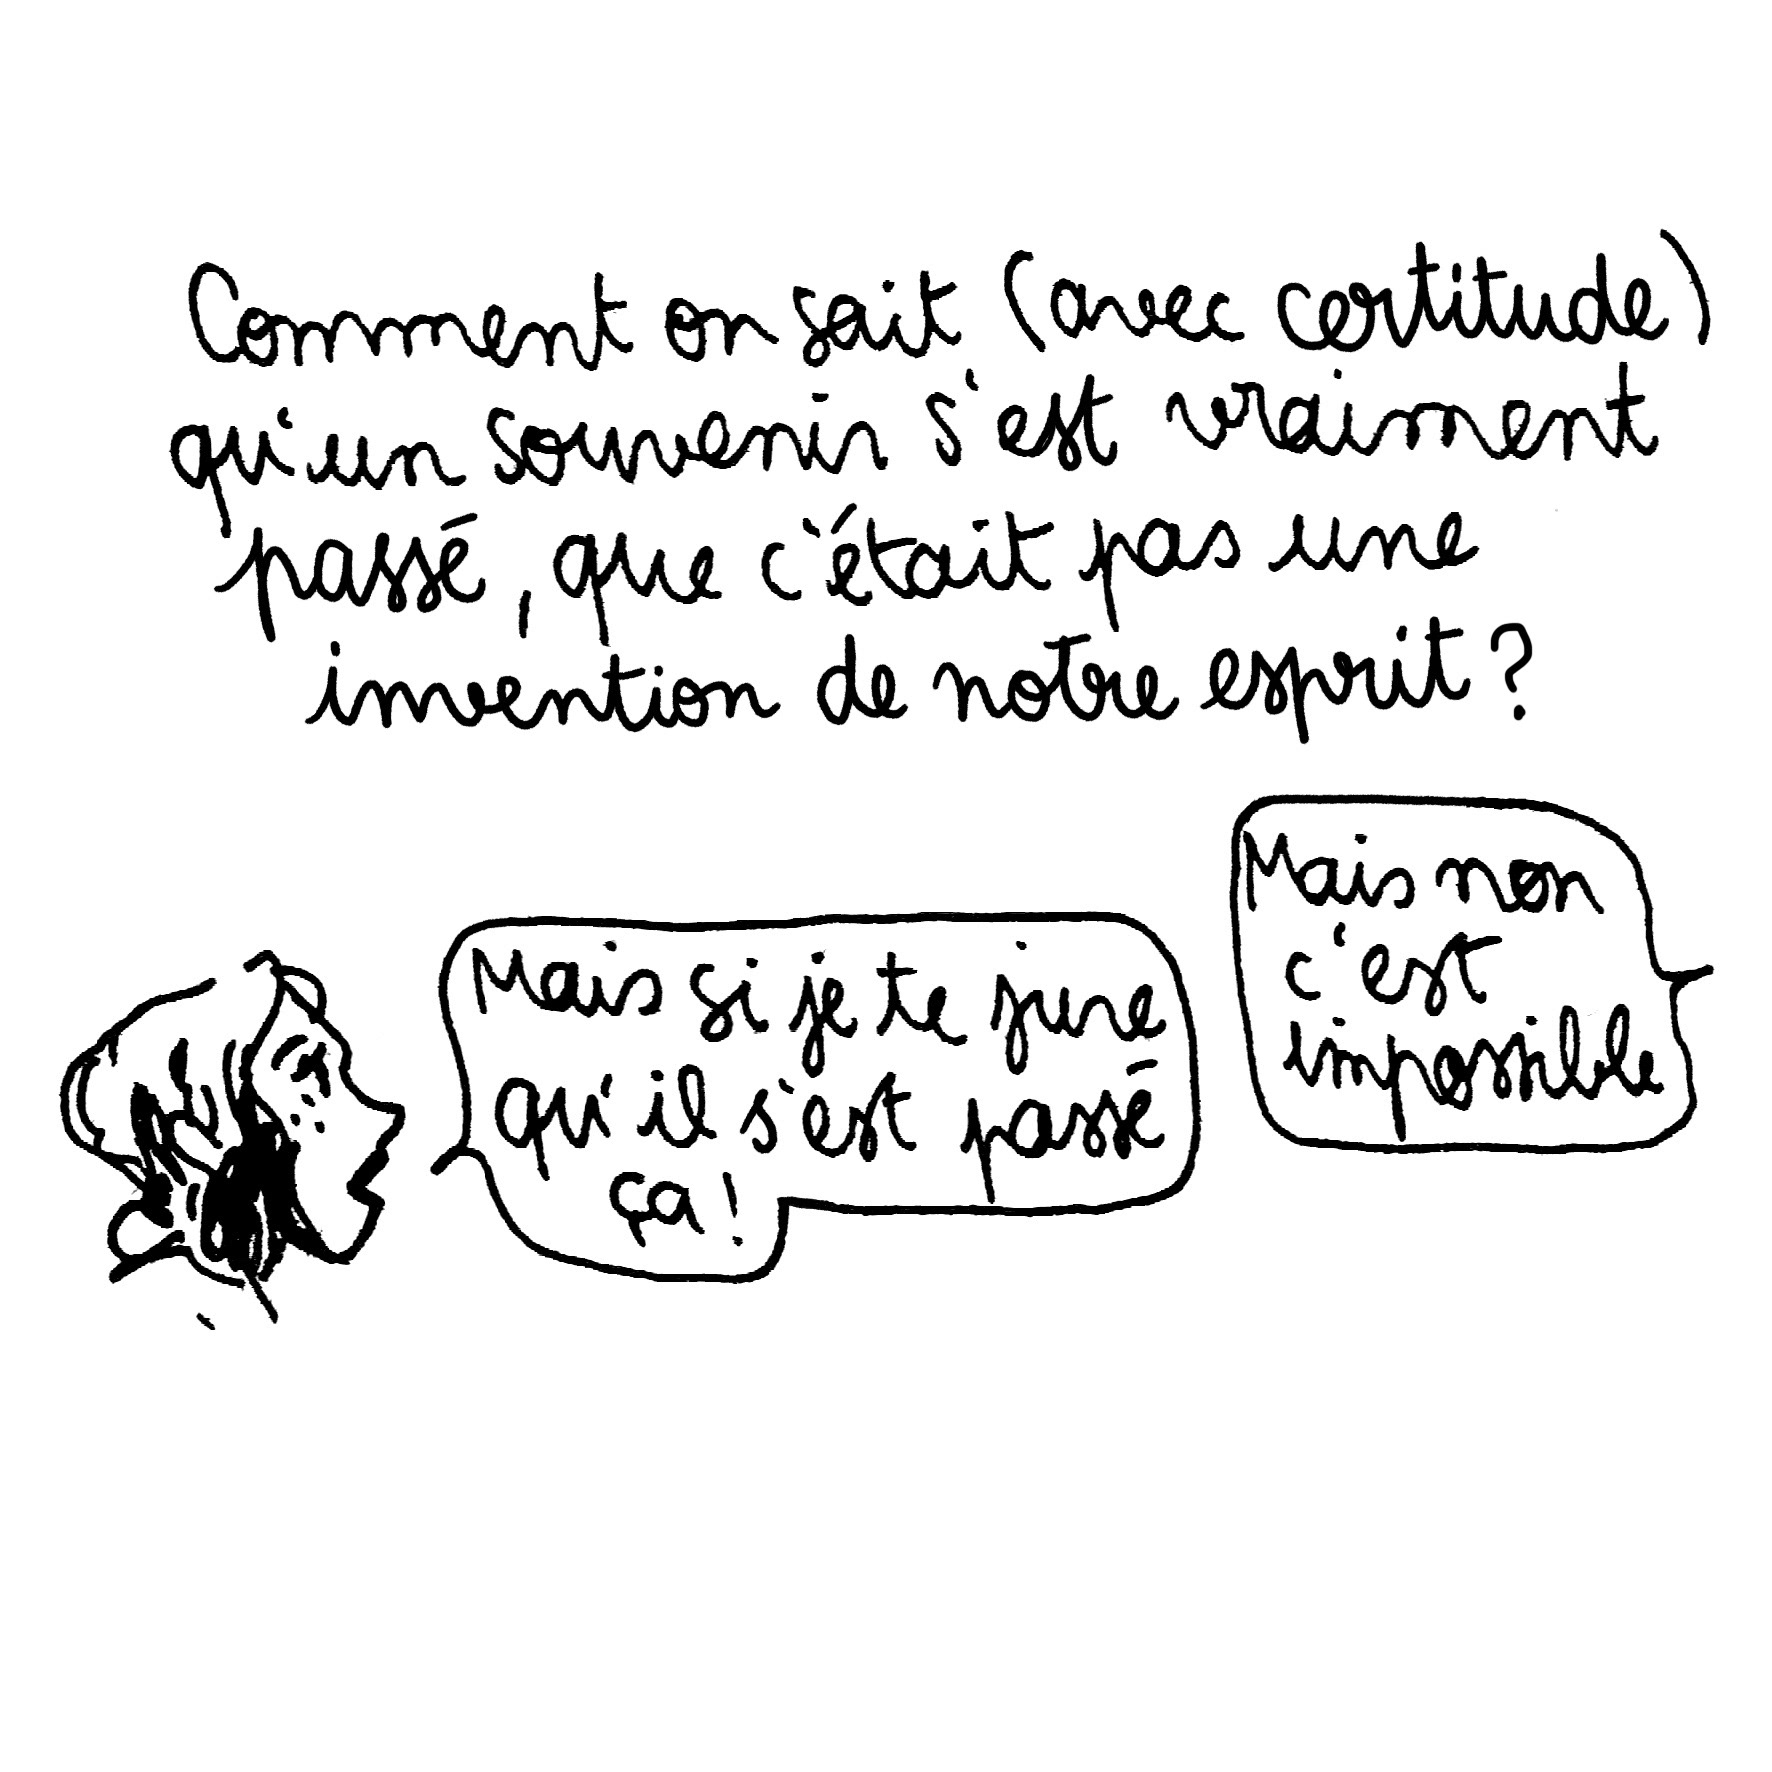 Comment on sait (avec certitude)
qu'un souvenir s'est vraiment
passé, que c'était pas une
invention de notre esprit ?
Mais si je te jure
qu'il s'est passé
ça !
Mais non
c'est
impossible